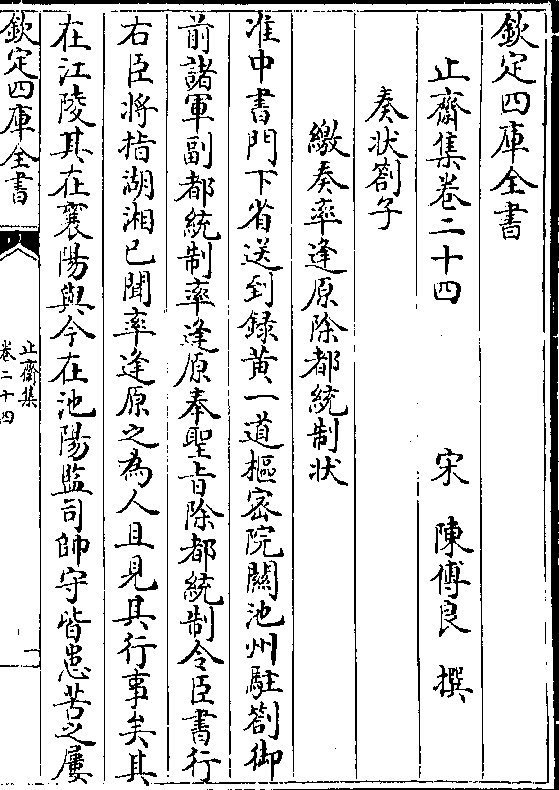 欽定四庫全書
止齋集卷二十四
宋 陳傅良 撰
奏狀劄子
繳奏率逢原除都統制狀
准中書門下省送到録黄一道樞密院關池州駐劄御
前諸軍副都統制率逢原奉聖旨除都統制令臣書行
右臣將指湖湘已聞率逢原之為人且見其行事矣其
在江陵其在襄陽與今在池陽監司帥守皆患苦之屢
欽定四庫全書
止齋集
卷二十四
一